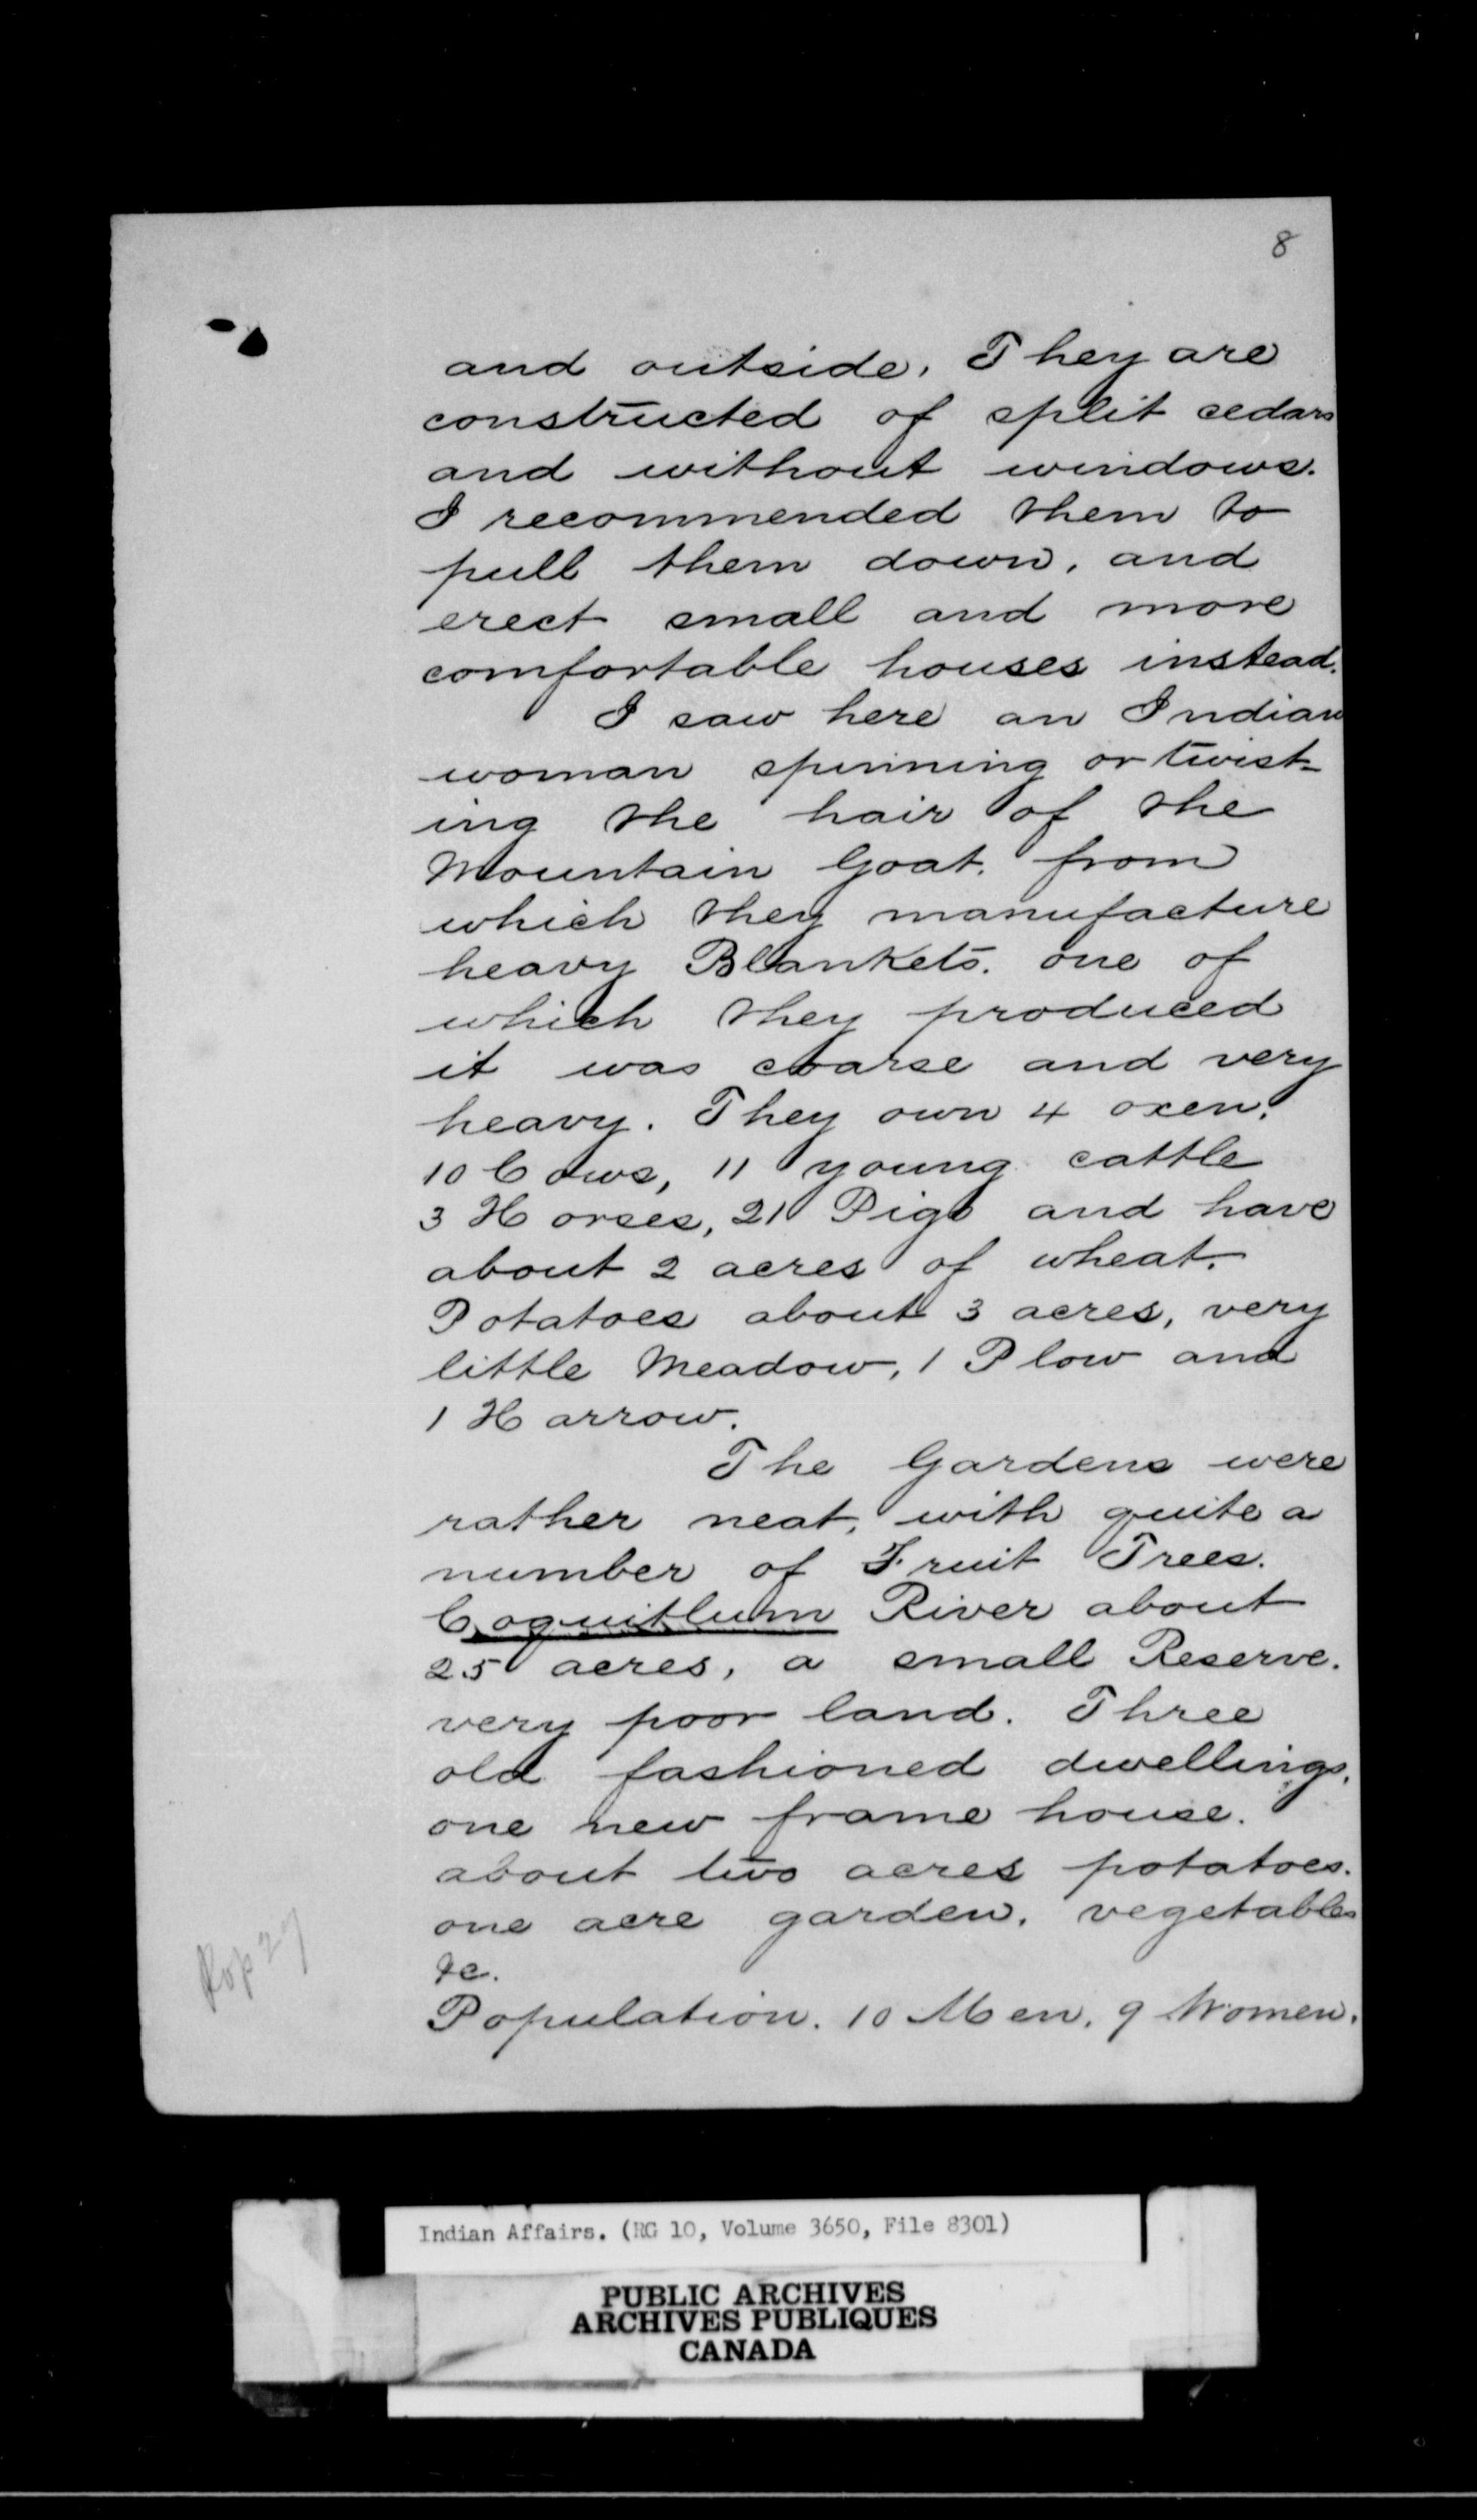 8
and outside. They are
constructed of split cedars
and without windows.
I recommended them to
pull them down, and
erect small and more
comfortable houses instead.
I saw here an Indian
woman spinning or twist-
ing the hair of the
Mountain Goat, from
which they manufacture
heavy Blankets. one of
which they produced
it was coarse and very
heavy. They own 4 oxen,
10 Cows, 11 young cattle
3 Horses, 21 Pigs and have
about 2 acres of wheat.
Potatoes about 3 acres, very
little Meadow, 1 Plow and
1 Harrow.
The Gardens were
rather neat, with quite a
number of Fruit Trees.
Coquitlum River about
25 acres, a small Reserve.
very poor land. Three
old fashioned dwellings,
one new frame house.
about two acres potatoes.
one acre garden, vegetables
&c.
Pop 29
Population. 10 Men, 9 Women.
Indian Affairs. (RG 10, Volume 3650, File 8301)
PUBLIC ARCHIVES
ARCHIVES PUBLIQUES
CANADA